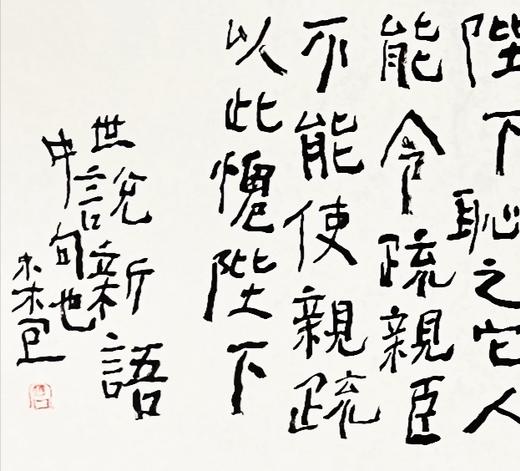 陛下恥之它人
能令疏親臣
不能使親疏
以此愧陛下
世說新語
中句也